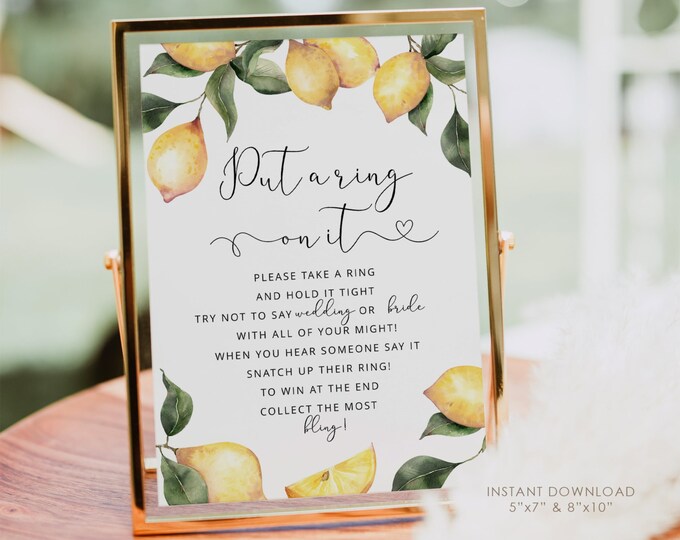 Put a ring
on it
PLEASE TAKE A RING
AND HOLD IT TIGHT
TRY NOT TO SAY wedding OR bride
WITH ALL OF YOUR MIGHT!
WHEN YOU HEAR SOMEONE SAY IT
SNATCH UP THEIR RING!
TO WIN AT THE END
COLLECT THE MOST
bling!
INSTANT DOWNLOAD
5"x7" & 8"x10"